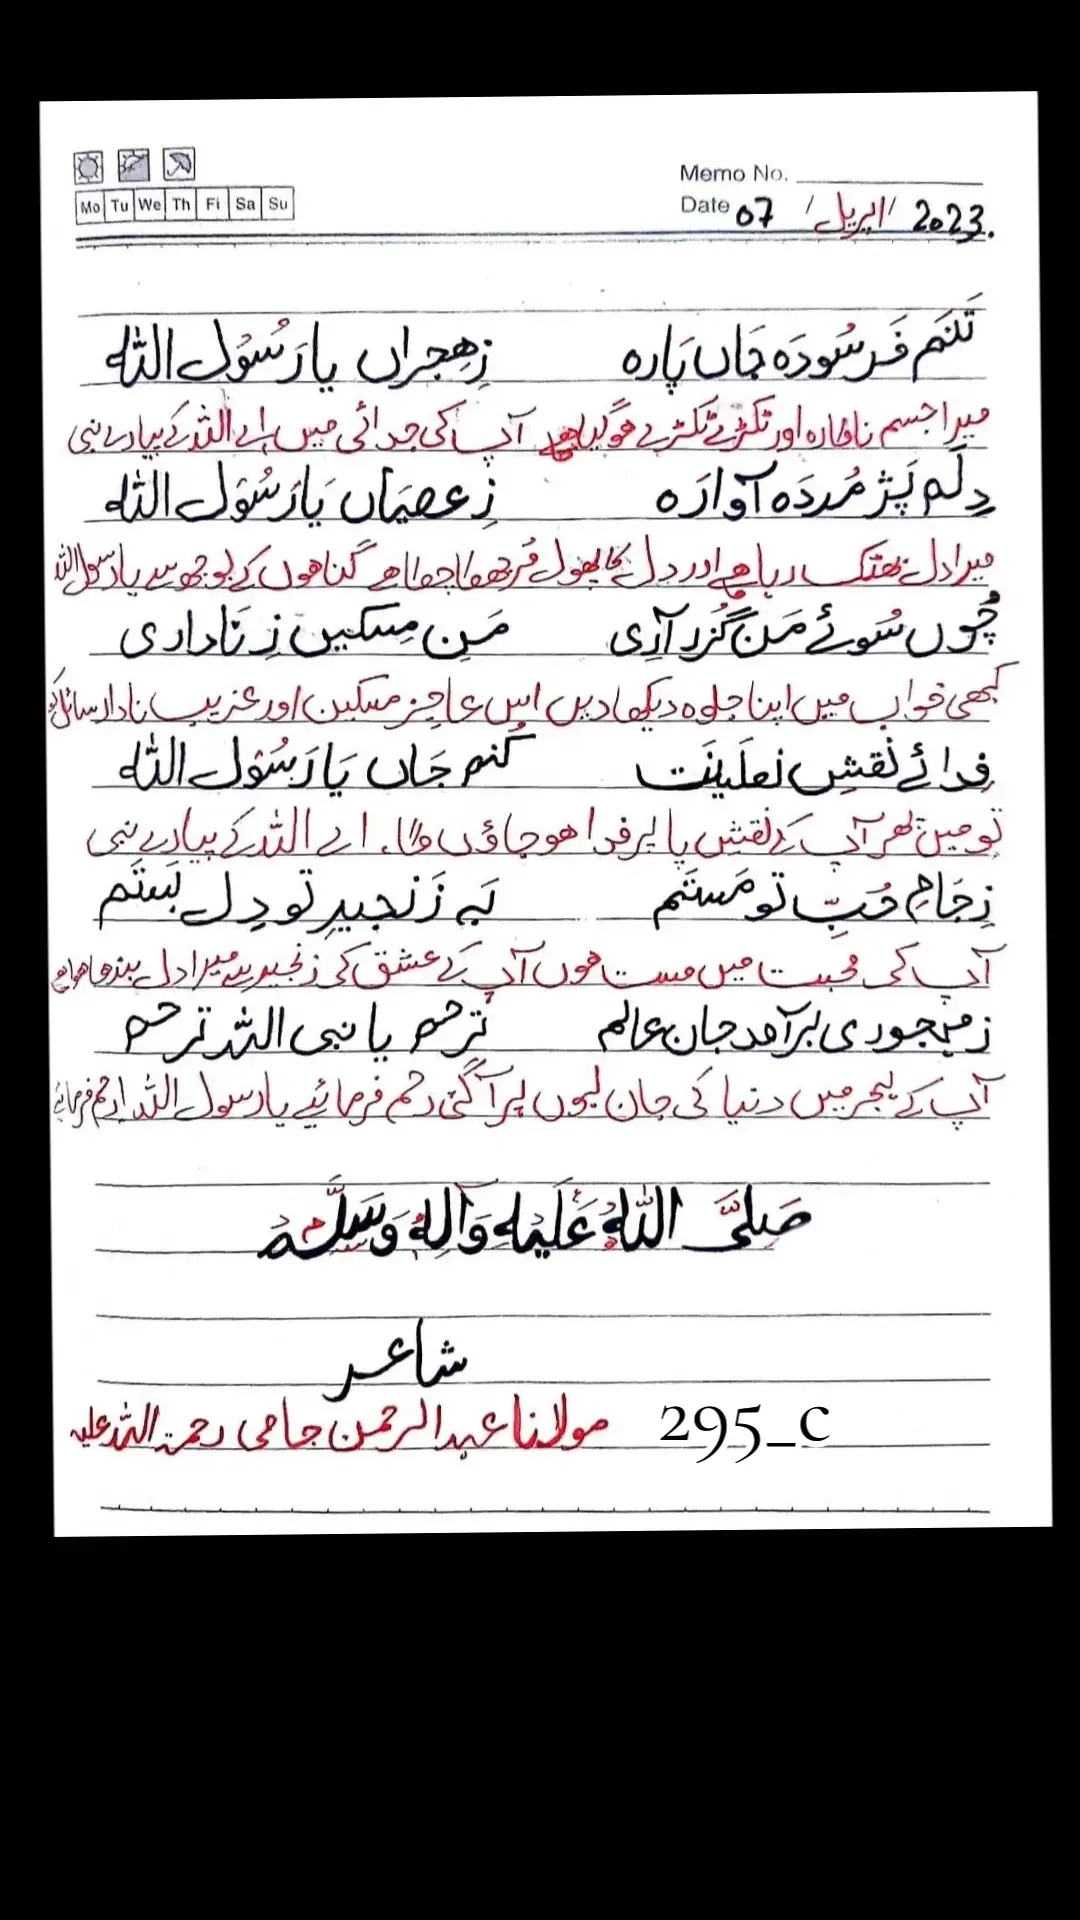 Memo No.
Mo Tu We Th Fi Sa Su
Date 07 / اپریل / 2023.
تَنَم فَرسُودَہ جَاں پَارہ زِھِجراں یا رَسُوْل اللہ
میرا جسم ناکارہ اور ٹکڑے ٹکڑے ھوگیا ھے آپ کی جدائی میں اے اللہ کے پیارے نبی
دِلَم پَژ مُردَہ آوارَہ زِ عصیَاں یَا رَسُوْل اللہ
میرا دل بھٹک رہا ھے اور دل کا پھول مُرجھا اھے گناھوں کے بوجھ سے یا رسول اللہ
چُوں سُوئے مَن گُزر آرِی مَن مِسکِین زِ نَاداری
کبھی خواب میں اپنا جلوہ دیکھا دیں اس عاجز مسکین اور غریب نادار سائل کو
فِدائے نَقشِ نَعلَینَت کُنم جَاں یَا رَسُوْل اللہ
تو میں پھر آپ کے نقش پا پر فدا ھو جاؤں گا. اے اللہ کے پیارے نبی
زِ جَامِ حُبِّ تو مَستَم بَہ زَنجیرِ تو دِل بَستَم
آپ کی محبت میں مست ھوں آپ کے عشق کی زنجیر سے میرا دل بندھا ھوا ھے
زمہجوری برآمد جان عالم تُرحم یا نبی اللہ ترحم
آپ کے ہجر میں دنیا کی جان لبوں پر آگئی رحم فرمائیے یا رسول اللہ رحم فرمائیے
صَلَّی اللّٰہُ عَلَیہِ وَآلِہٖ وَسَلَّم
شاعر
مولانا عبدالرحمن جامی رحمۃ اللہ علیہ 295_c